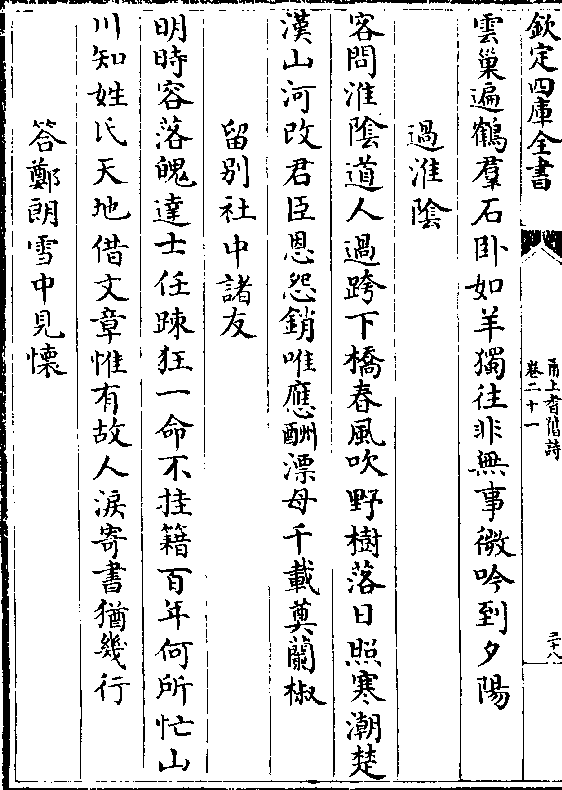 欽定四庫全書
甬上耆舊詩
卷二十一
二十八
雲巢遍鶴羣石卧如羊獨往非無事微吟到夕陽
過淮陰
客問淮陰道人過跨下橋春風吹野樹落日照寒潮楚
漢山河改君臣恩怨銷唯應酬漂母千載奠蘭椒
留别社中諸友
明時容落魄達士任踈狂一命不挂籍百年何所忙山
川知姓氏天地借文章惟有故人淚寄書猶幾行
答鄭朗雪中見懷